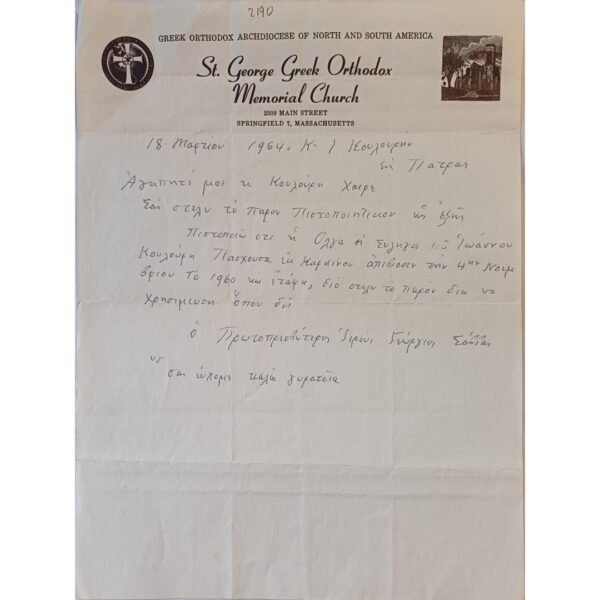 2190
GREEK ORTHODOX ARCHDIOCESE OF NORTH AND SOUTH AMERICA
St. George Greek Orthodox
Memorial Church
2309 MAIN STREET
SPRINGFIELD 7, MASSACHUSETTS
18 Μαρτίου 1964. Κ. Ι Κουλούρην
εις Πάτρας
Ἀγαπητέ μοι κ Κουλούρη Χαῖρε
Σας στελν το παρον Πιστοποιητικον ὡς ἑξῆς
Πιστοποιῶ οτι ἡ Ολγα σύζυγος του Ἰωάννου
Κουλούρη Πασχουσα ἐκ Καρκινου ἀπεβίωσεν την 4ην Νοεμ
βριου το 1960 και ἐτάφη, διὸ στελν το παρόν δια να
Χρησιμευση ὅπου δεῖ
ὁ Πρωτοπρεσβύτερος ἱερεὺς Γεώργιος
σας καλα